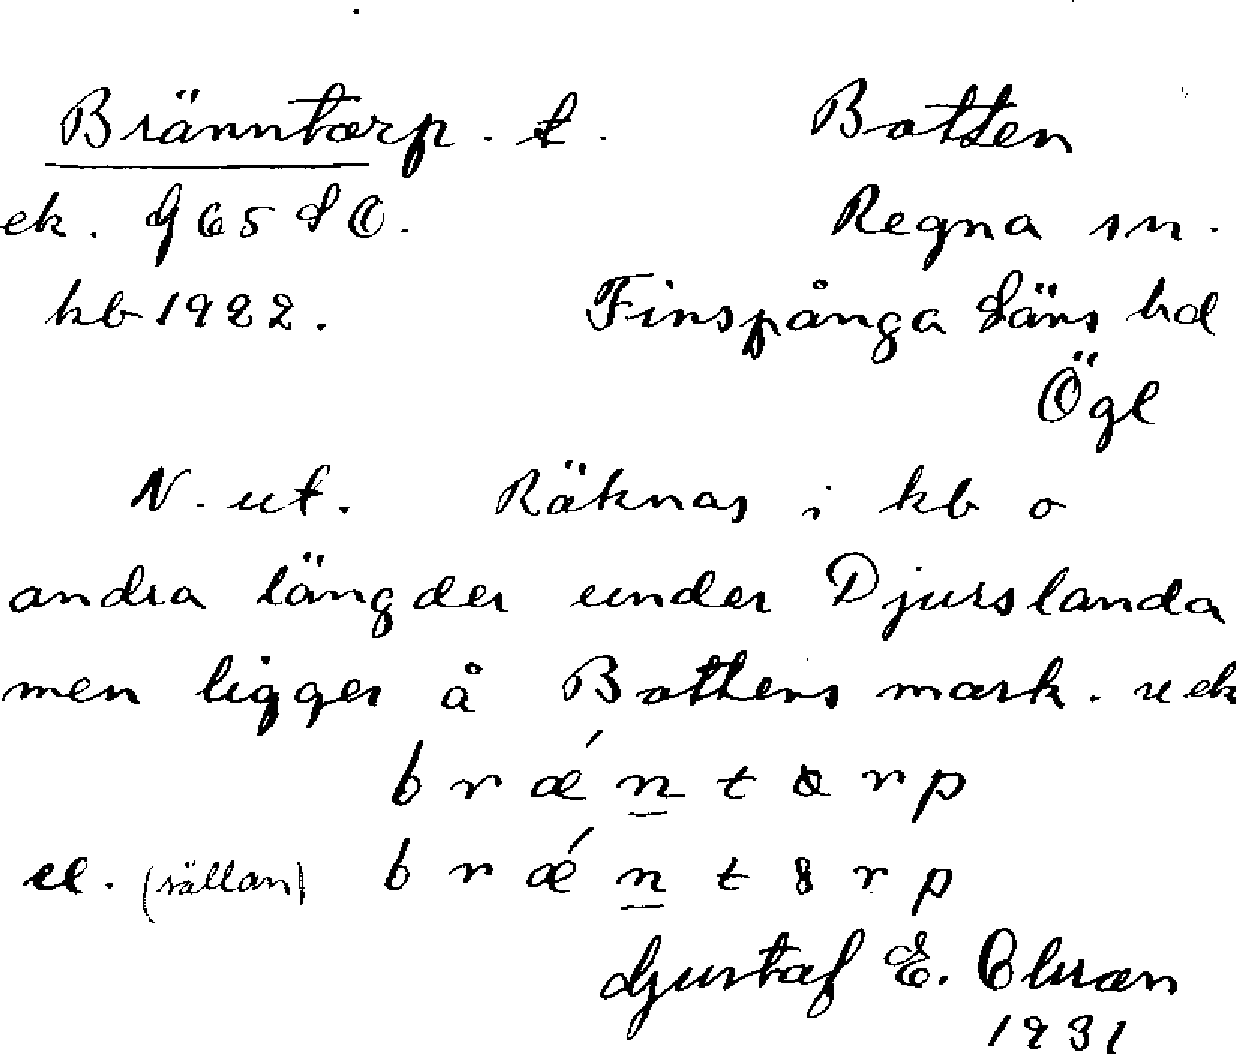 Bränntorp. t. Botten
ek. 965 SO. Regna sn.
kb 1922. Finspånga Läns hd
Ögl
N. ut. Räknas i kb o
andra längder under Djurslanda
men ligger å Bottens mark. u ek
b r ǽ n t r p
el. (sällan) b r ǽ n t 8 r p
Gustaf E. Olson
1931